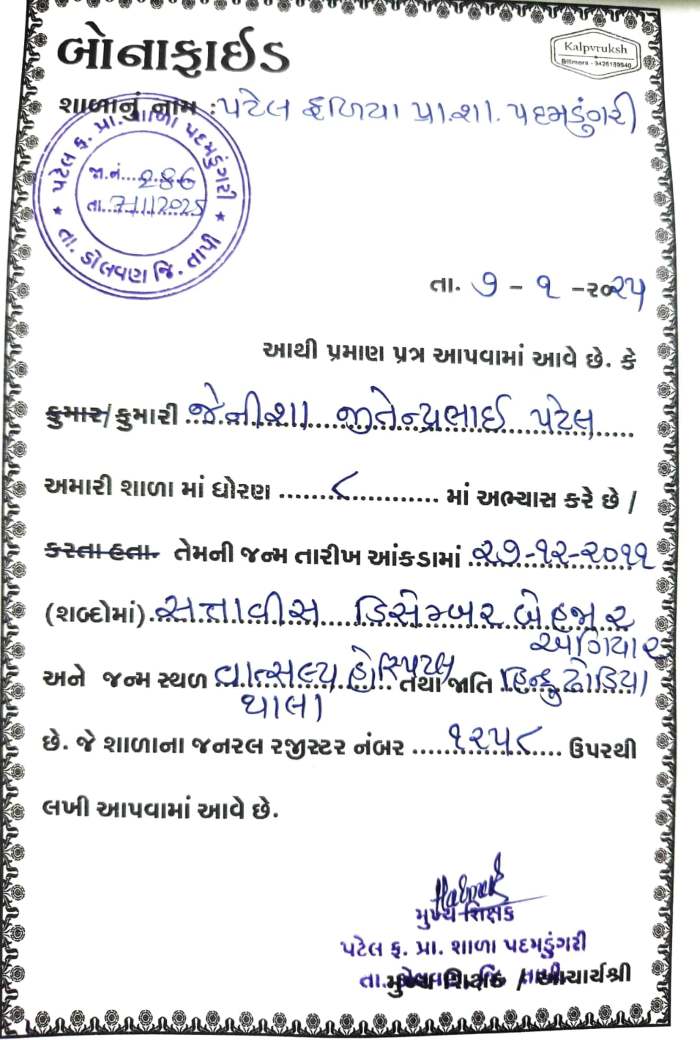 બોનાફાઈડ
Kalpvruksh
Billimora - 9426189840
શાળાનું નામ : પટેલ ફળિયા પ્રા.શા. પદમડુંગરી
પટેલ ફ. પ્રા. શાળા પદમડુંગરી
જા.નં... 286
તા..7/1/2025
તા. ડોલવણ જિ. તાપી
તા. ૭ - ૧ - ૨૦૨૫
આથી પ્રમાણ પત્ર આપવામાં આવે છે. કે
કુમાર/કુમારી જેનીશા જીતેન્દ્રભાઈ પટેલ
અમારી શાળા માં ધોરણ ......૮...... માં અભ્યાસ કરે છે /
કરતા હતા. તેમની જન્મ તારીખ આંકડામાં ૨૭-૧૨-૨૦૧૧
(શબ્દોમાં) સત્તાવીસ ડિસેમ્બર બે હજાર
અગિયાર
અને જન્મ સ્થળ વાત્સલ્ય હોસ્પિટલ તથા જાતિ હિન્દુ ઢોડિયા
વાલા
છે. જે શાળાના જનરલ રજીસ્ટર નંબર ......૧૨૫૮...... ઉપરથી
લખી આપવામાં આવે છે.
મુખ્ય શિક્ષક
પટેલ ફ. પ્રા. શાળા પદમડુંગરી
તા. મુખ્ય શિક્ષક / આચાર્યશ્રી